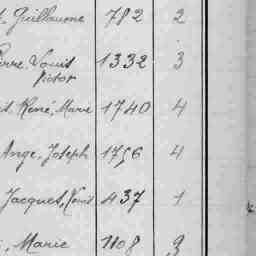 Guillaume 782 2
Pierre, Louis 1332 3
Victor
René, Marie 1740 4
Ange, Joseph 1756 4
Jacques, Louis 437 1
Marie 1108 3